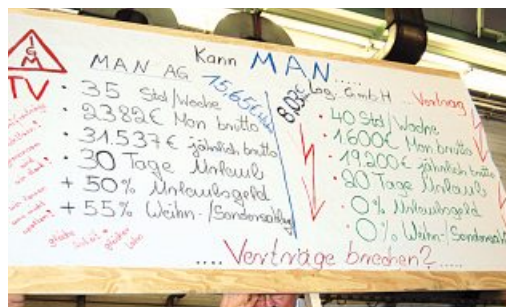 Kann MAN.....
IGM
TV
MAN AG 15,65€/Std
• 35 Std/Woche
• 2382€ Mon brutto
• 31.537€ jährlich brutto
• 30 Tage Urlaub
+ 50% Urlaubsgeld
+ 55% Weihn-/Sonderzahlg
gleiche Arbeit gleicher Lohn
8,03€ Log. GmbH ...Vertrag
• 40 Std/Woche
• 1.600€ Mon brutto
• 19.200€ jährlich brutto
• 20 Tage Urlaub
• 0% Urlaubsgeld
• 0% Weihn-/Sonderzahlg
.... Verträge brechen?.....